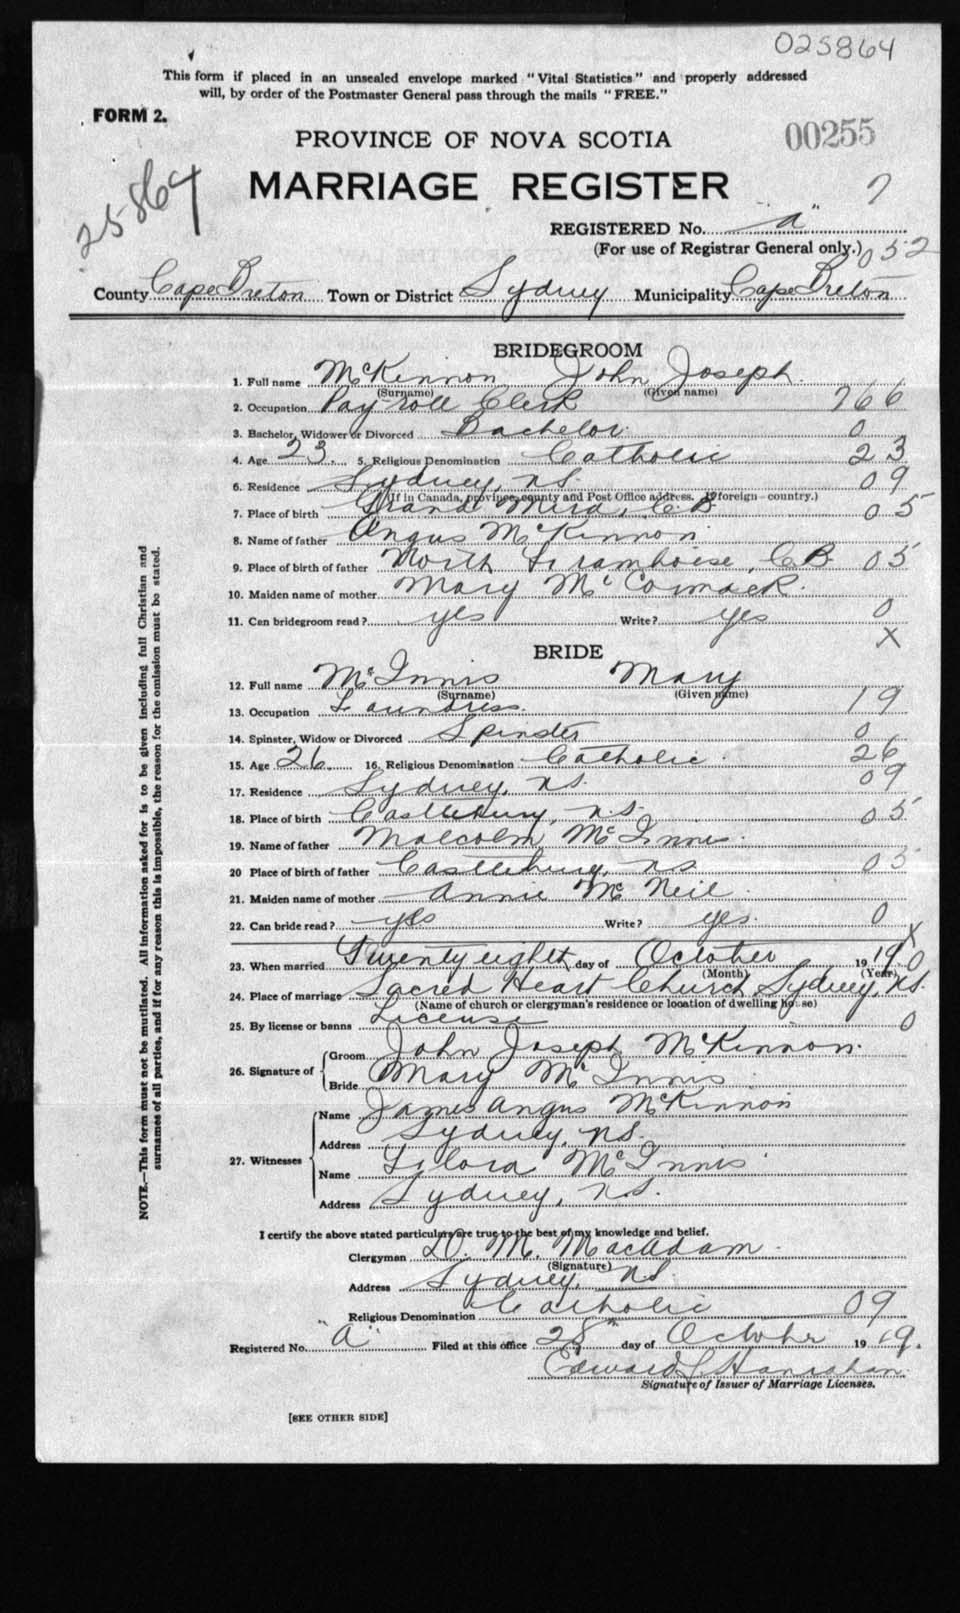 025864
This form if placed in an unsealed envelope marked "Vital Statistics" and properly addressed
will, by order of the Postmaster General pass through the mails "FREE."
FORM 2.
PROVINCE OF NOVA SCOTIA
00255
25864
MARRIAGE REGISTER
7
REGISTERED No. "a"
(For use of Registrar General only.)
052
County Cape Breton Town or District Sydney Municipality Cape Breton
BRIDEGROOM
1. Full name McKinnon John Joseph.
(Surname) (Given name)
2. Occupation Pay-roll Clerk 766
3. Bachelor, Widower or Divorced Bachelor. 0
4. Age 23. 5. Religious Denomination Catholic 23
6. Residence Sydney, N.S. 09
(If in Canada, province, county and Post Office address. If foreign—country.)
7. Place of birth Grand Mira, C.B. 05
8. Name of father Angus McKinnon
9. Place of birth of father North Framboise, C.B. 05
10. Maiden name of mother Mary McCormack.
11. Can bridegroom read? yes Write? yes 0
X
BRIDE
12. Full name McInnis Mary
(Surname) (Given name)
13. Occupation Laundress. 19
14. Spinster, Widow or Divorced Spinster 0
15. Age 26. 16. Religious Denomination Catholic. 26
17. Residence Sydney, N.S. 09
18. Place of birth Castlebay, N.S. 05
19. Name of father Malcolm McInnis.
20 Place of birth of father Castlebay, N.S. 05
21. Maiden name of mother Annie McNeil.
22. Can bride read? yes Write? yes. 0
X
23. When married Twenty eighth day of October 1919. 0
(Month) (Year)
24. Place of marriage Sacred Heart Church, Sydney, N.S.
(Name of church or clergyman's residence or location of dwelling house)
25. By license or banns License 0
26. Signature of Groom John Joseph McKinnon.
Bride Mary McInnis
27. Witnesses Name James Angus McKinnon
Address Sydney, N.S.
Name McInnis
Address Sydney, N.S.
I certify the above stated particulars are true to the best of my knowledge and belief.
Clergyman D. M. MacAdam.
(Signature)
Address Sydney, N.S.
Religious Denomination Catholic 09
Registered No. "A" Filed at this office 28th day of October 1919.
Edward L. Hanrahan.
Signature of Issuer of Marriage Licenses.
[SEE OTHER SIDE]
NOTE.—This form must not be mutilated. All information asked for is to be given including full Christian and
surnames of all parties, and if for any reason this is impossible, the reason for the omission must be stated.